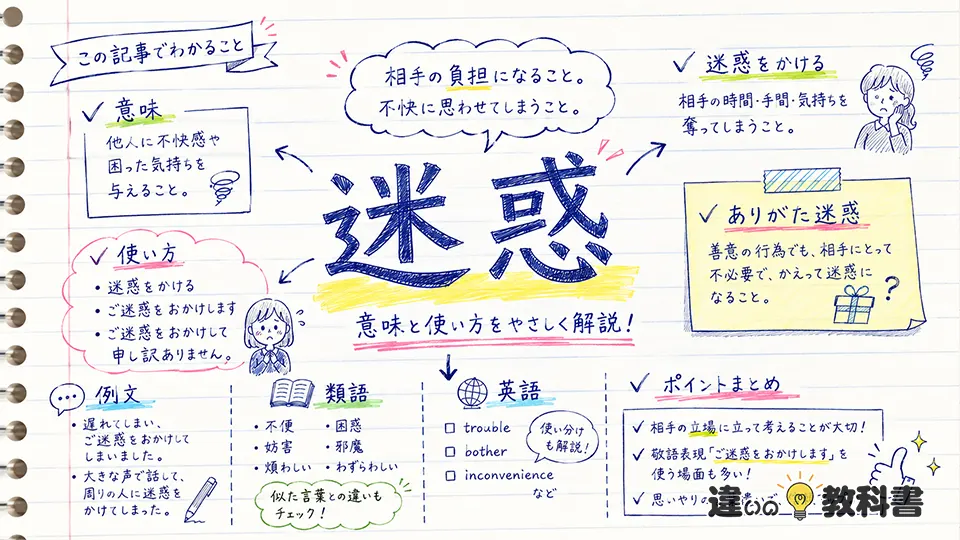 この記事でわかること
相手の負担になること。
不快に思わせてしまうこと。
迷惑
意味と使い方をやさしく解説！
意味
他人に不快感や
困った気持ちを
与えること。
迷惑をかける
相手の時間・手間・気持ちを
奪ってしまうこと。
ありがた迷惑
善意の行為でも、相手にとって
不必要で、かえって迷惑に
なること。
?
使い方
• 迷惑をかける
• ご迷惑をおかけします
• ご迷惑をおかけして
申し訳ありません。
例文
• 遅れてしまい、
ご迷惑をおかけして
しまいました。
• 大きな声で話して、
周りの人に迷惑を
かけてしまった。
類語
• 不便 • 困惑
• 妨害 • 邪魔
• 煩わしい • わずらわしい
似た言葉との違いも
チェック！
英語
trouble
bother
inconvenience
など
使い分け
も解説！
ポイントまとめ
相手の立場に立って考えることが大切！
敬語表現「ご迷惑をおかけします」を
使う場面も多い！
思いやりの
違いの教科書